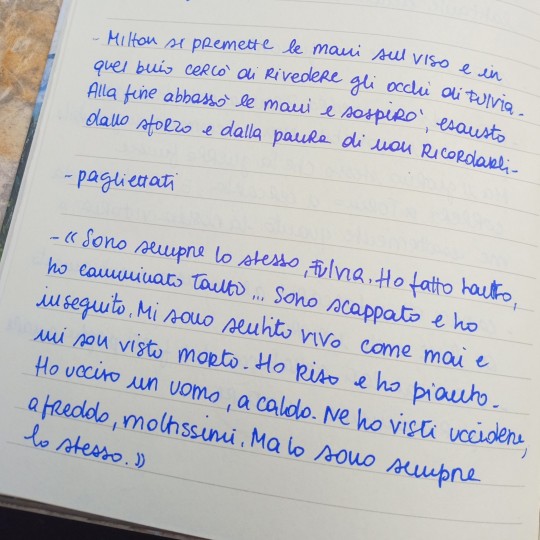 - Milton si premette le mani sul viso e in
quel buio cercò di rivedere gli occhi di Fulvia.
Alla fine abbassò le mani e sospirò, esausto
dallo sforzo e dalla paura di non ricordarli.
- pagliettati
- « Sono sempre lo stesso, Fulvia. Ho fatto tanto,
ho camminato tanto... Sono scappato e ho
inseguito. Mi sono sentito vivo come mai e
mi son visto morto. Ho riso e ho pianto.
Ho ucciso un uomo, a caldo. Ne ho visti uccidere,
a freddo, moltissimi. Ma io sono sempre
lo stesso. »